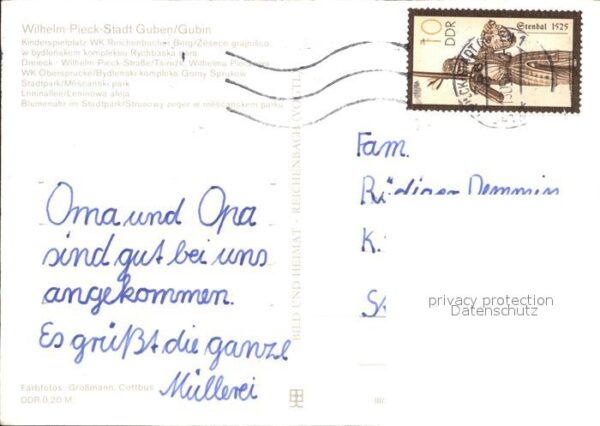 Wilhelm-Pieck-Stadt Guben/Gubin
Kinderspielplatz WK Reichenbacher Berg/Zésece grajnišćo
w bydleńskem kompleksu Rychbaska góra
Dreieck - Wilhelm-Pieck-Straße/Tśirožk Wilhelma Piecka
WK Obersprucke/Bydleński kompleks Gorny Sprjokow
Stadtpark/Měšćański park
Leninallee/Leninowa aleja
Blumenuhr im Stadtpark/Strusowy zeger w měšćańskem parku
10 DDR
Stendal 1525
BILD UND HEIMAT · REICHENBACH (VOGTL)
Oma und Opa
sind gut bei uns
angekommen.
Es grüßt die ganze
Müllerei
Fam.
Rüdiger Demmin
K.
St
privacy protection
Datenschutz
Farbfotos: Großmann, Cottbus
DDR 0,20 M